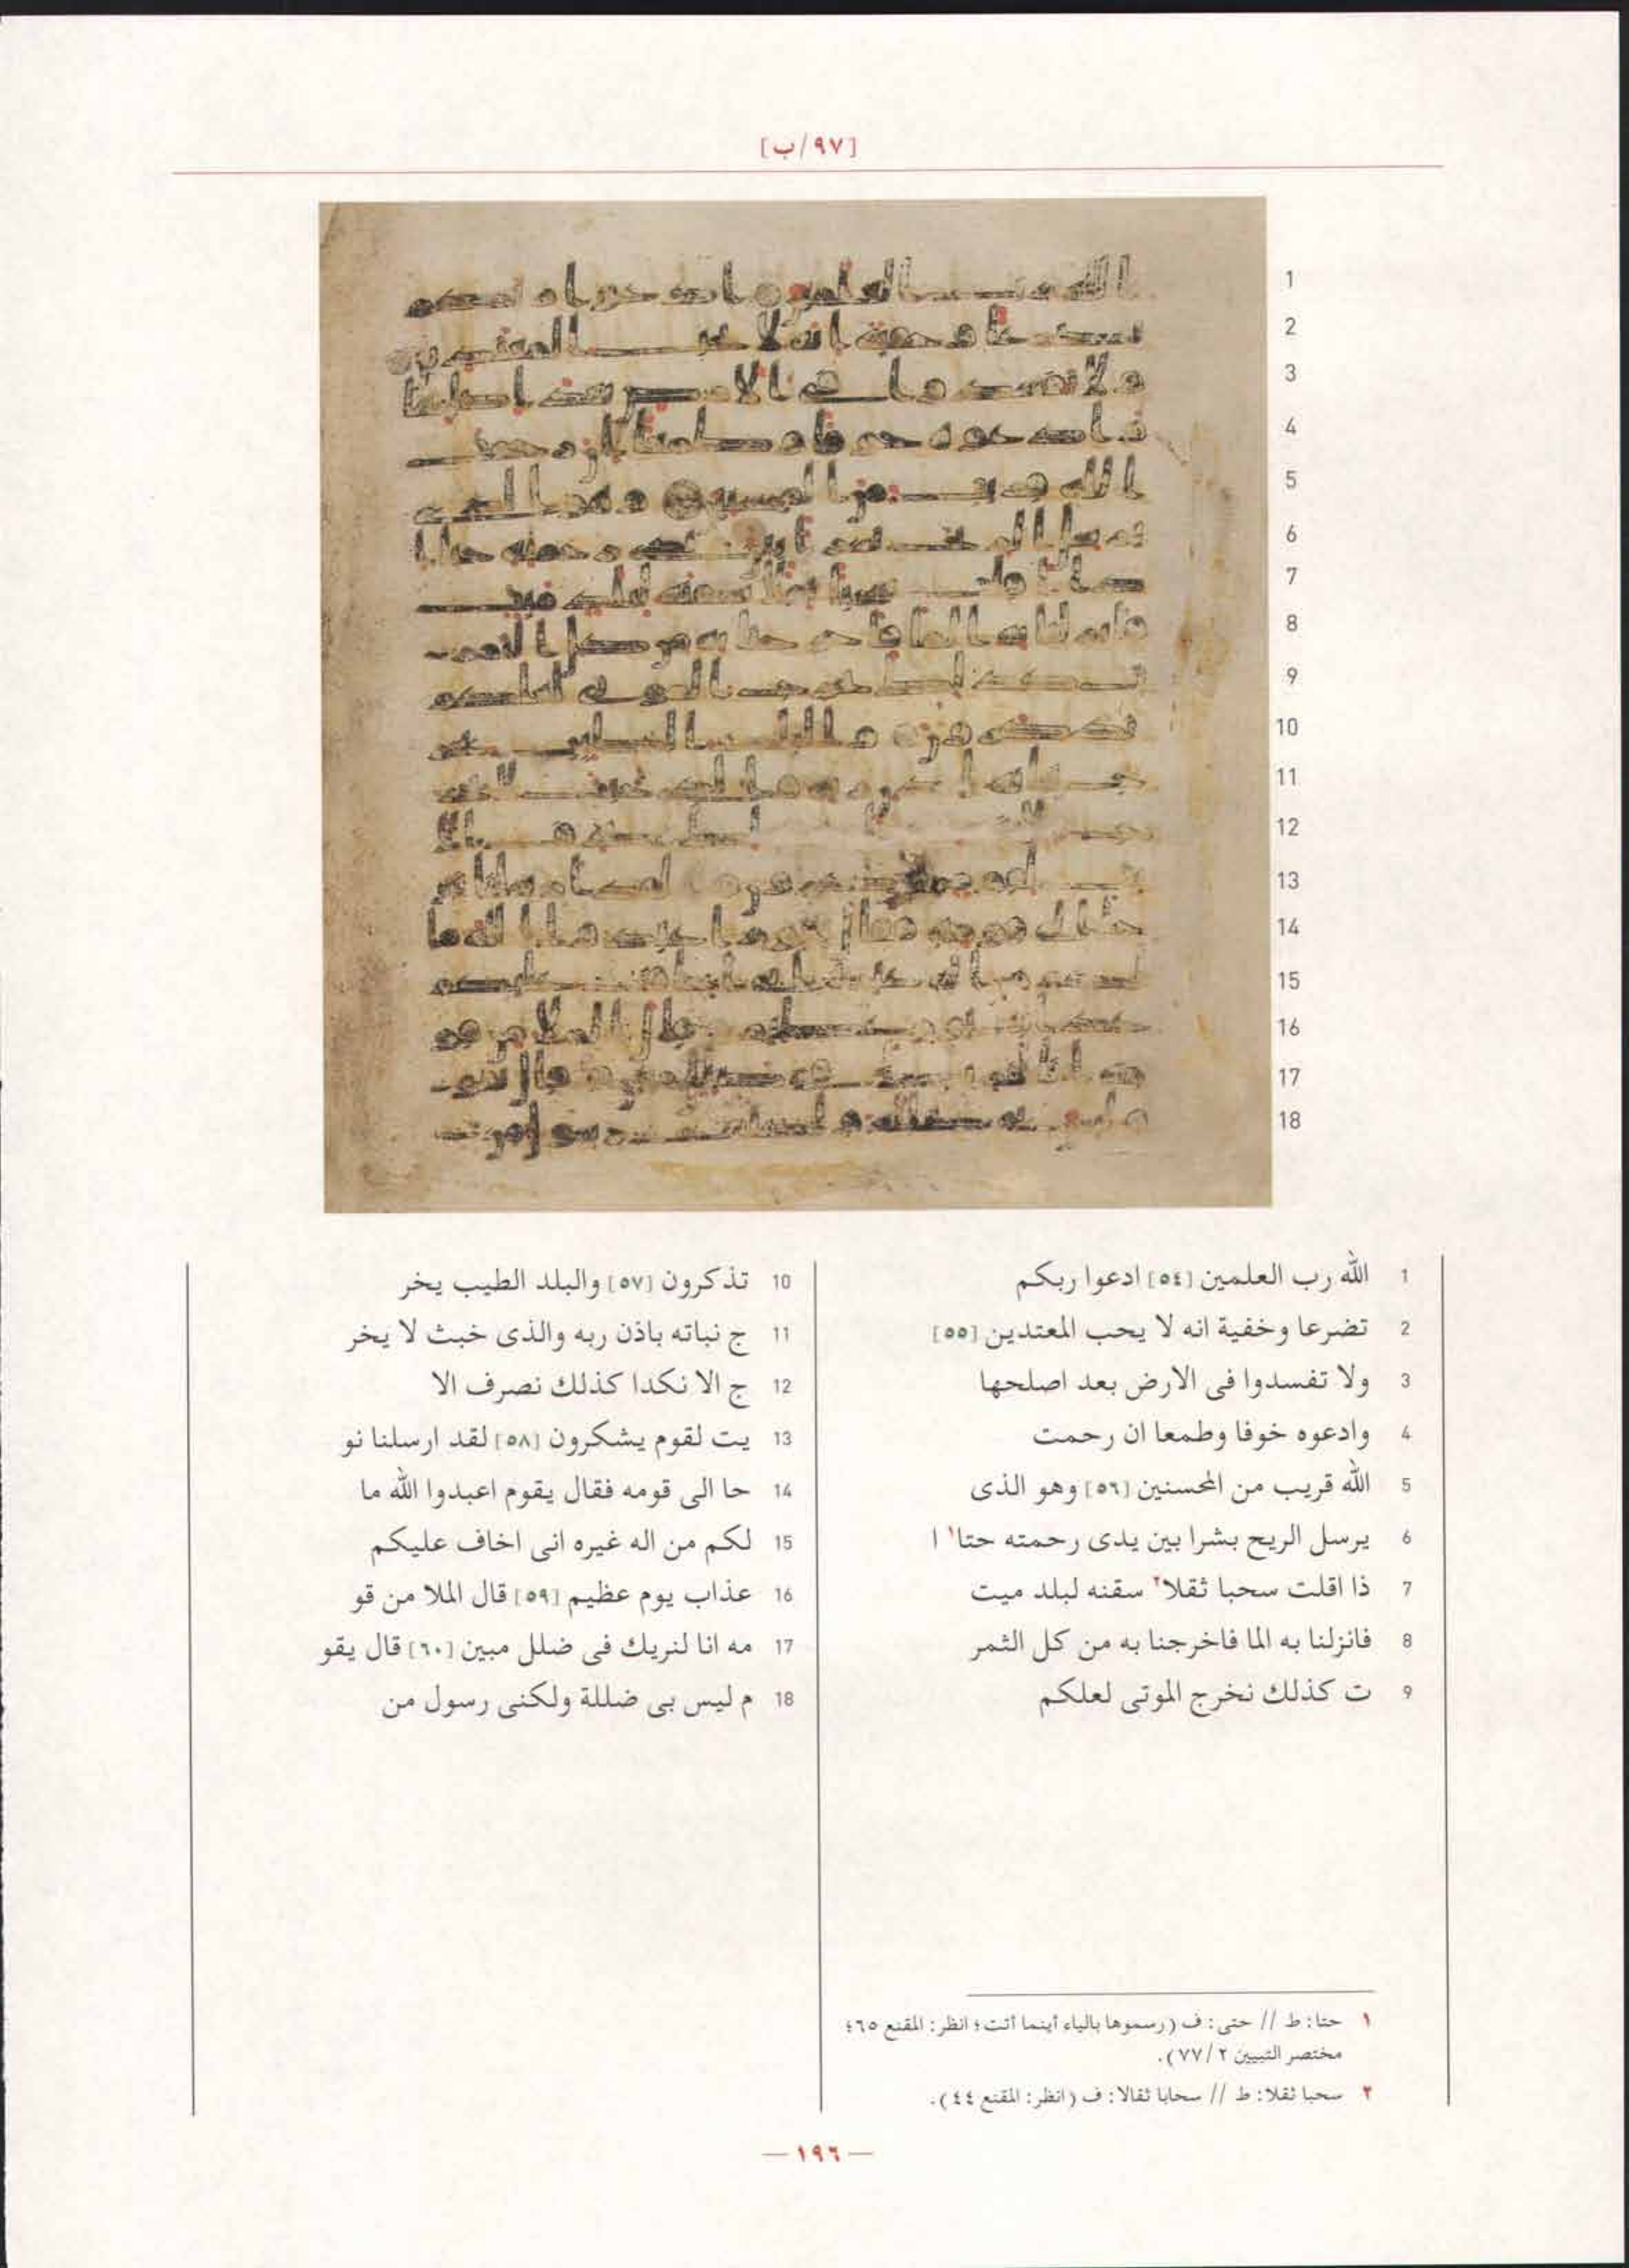 [٩٧/ب]
1
2
3
4
5
6
7
8
9
10
11
12
13
14
15
16
17
18
1 الله رب العلمين [٥٤] ادعوا ربكم
2 تضرعا وخفية انه لا يحب المعتدين [٥٥]
3 ولا تفسدوا فى الارض بعد اصلحها
4 وادعوه خوفا وطمعا ان رحمت
5 الله قريب من المحسنين [٥٦] وهو الذى
6 يرسل الريح بشرا بين يدى رحمته حتا١ ا
7 ذا اقلت سحبا ثقلا٢ سقنه لبلد ميت
8 فانزلنا به الما فاخرجنا به من كل الثمر
9 ت كذلك نخرج الموتى لعلكم
10 تذكرون [٥٧] والبلد الطيب يخر
11 ج نباته باذن ربه والذى خبث لا يخر
12 ج الا نكدا كذلك نصرف الا
13 يت لقوم يشكرون [٥٨] لقد ارسلنا نو
14 حا الى قومه فقال يقوم اعبدوا الله ما
15 لكم من اله غيره انى اخاف عليكم
16 عذاب يوم عظيم [٥٩] قال الملا من قو
17 مه انا لنريك فى ضلل مبين [٦٠] قال يقو
18 م ليس بى ضللة ولكنى رسول من
١ حتا: ط // حتى: ف (رسموها بالياء أينما أتت؛ انظر: المقنع ٦٥؛
مختصر التبيين ٢/٧٧).
٢ سحبا ثقلا: ط // سحابا ثقالا: ف (انظر: المقنع ٤٤).
— ١٩٦ —